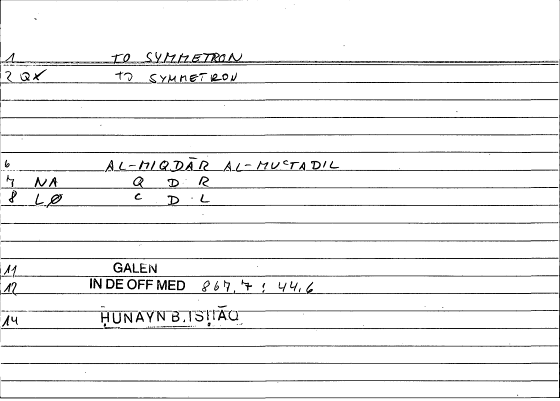 1 TO SYMMETRON
2 QX TO SYMMETRON
6 AL-MIQDĀR AL-MUCTADIL
7 NA Q D R
8 LØ C D L
11 GALEN
12 IN DE OFF MED 867,7 : 44,6
14 ḤUNAYN B. ISḤĀQ